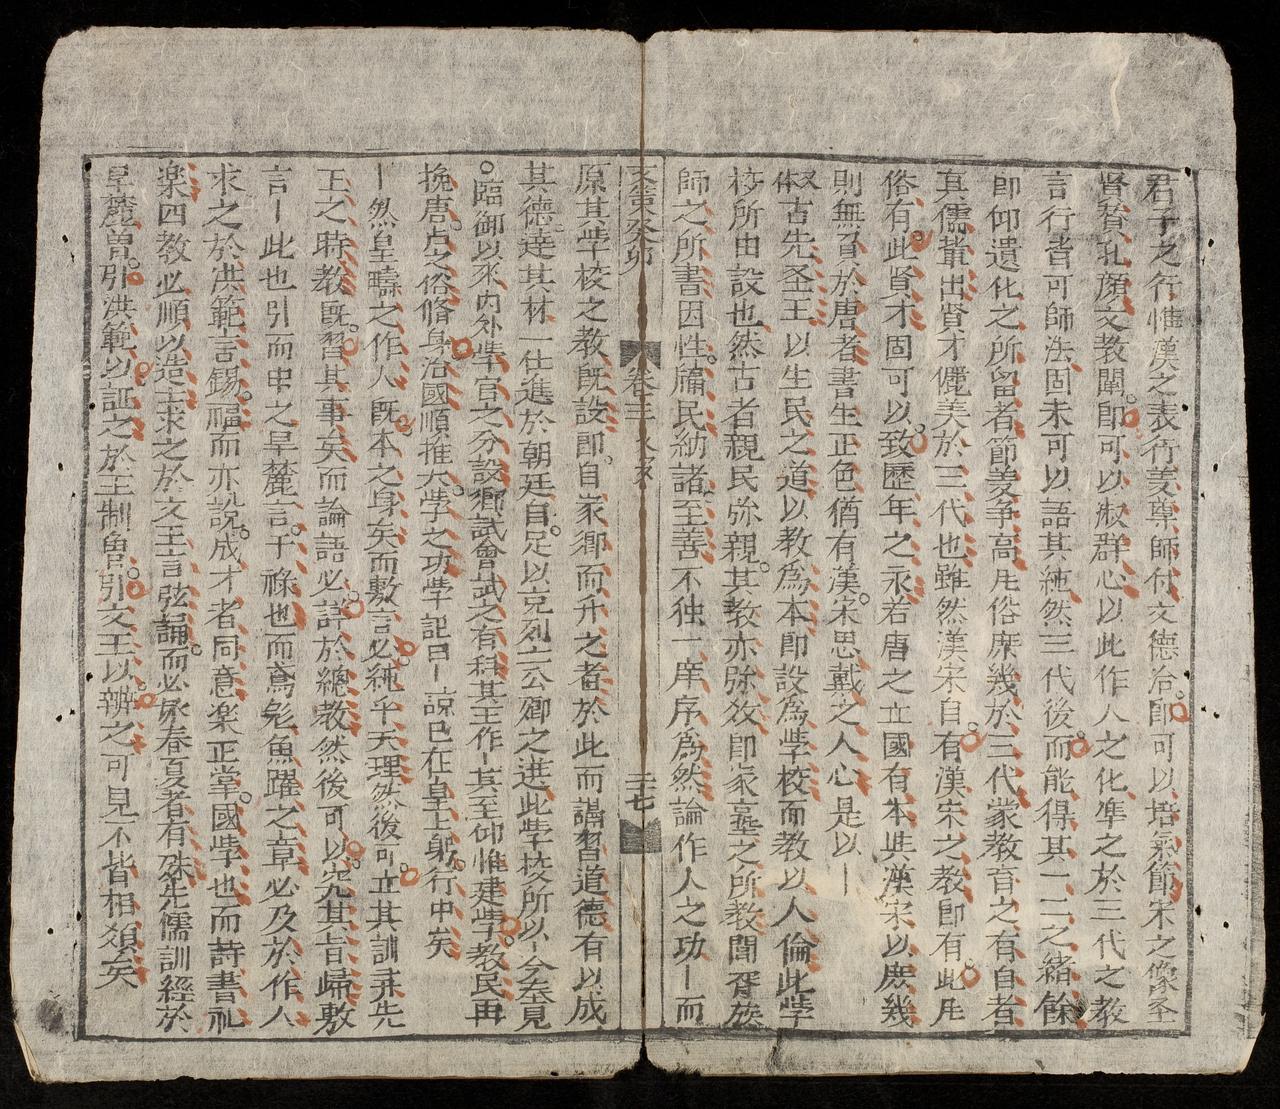 君子之行惟漢之表行義尊師付文德洽即可以培氣節宋之像圣
賢賛孔顔文教闡即可以淑群心以此作人之化準之於三代之教
言行者可師法固未可以語其純然三代後而能得其一二之緒餘
即仰遺化之所留者節義爭高凡俗庶幾於三代蒙教育之有自者
真儒輩出賢才儷美於三代也雖然漢宋自有漢宋之教即有此凡
俗有此賢才固可以致歷年之永若唐之立國有本其漢宋以庶幾
則無了於唐者書生正色猶有漢宋思戴之人心是以丨
体古先圣王以生民之道以教為本即設為斈校而教以人倫此斈
校所由設也然古者親民弥親其教亦弥效即家塾之所教閭胥族
師之所書因性牖民納諸至善不独一庠序為然論作人之功丨而
卷三
二七
原其斈校之教既設即自家鄉而升之者於此而講習道德有以成
其德達其材一仕進於朝廷自足以克列六公卿之進此斈校所以丨今奉見
臨御以來内外斈官之分設鄉試會試之有科其王作丨其至仰惟建斈教民再
挽唐虞之俗脩身治國順推大斈之功斈記曰丨說已在皇上躬行中矣
丨然皇疇之作人既本之身矣而敷言必純乎天理然後可立其訓并先
王之時教既習其事矣而論語必詳於總教然後可以究其旨歸敷
言丨此也引而申之旱麓言干祿也而鳶魚躍之章必及於作人
求之於洪範言錫福而亦說成才者同意楽正掌國斈也而詩書礼
楽四教必順以造士求之於文王言弦誦而必詠春夏者有殊先儒訓經於
旱麓曽引洪範以証之於王制曽引文王以辨之可見不皆相類矣